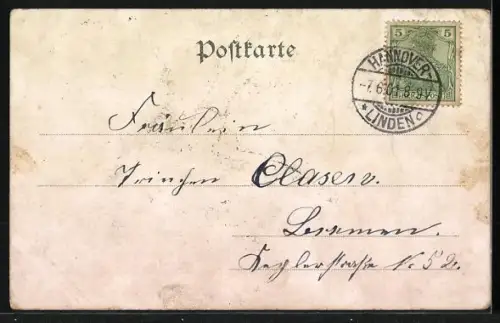 Postkarte
5 5
HANNOVER-
-7.6.01. 8-9V.
* LINDEN c
Fräulein
Trinchen Clasen.
Bremen.
Keplerstraße N. 52.